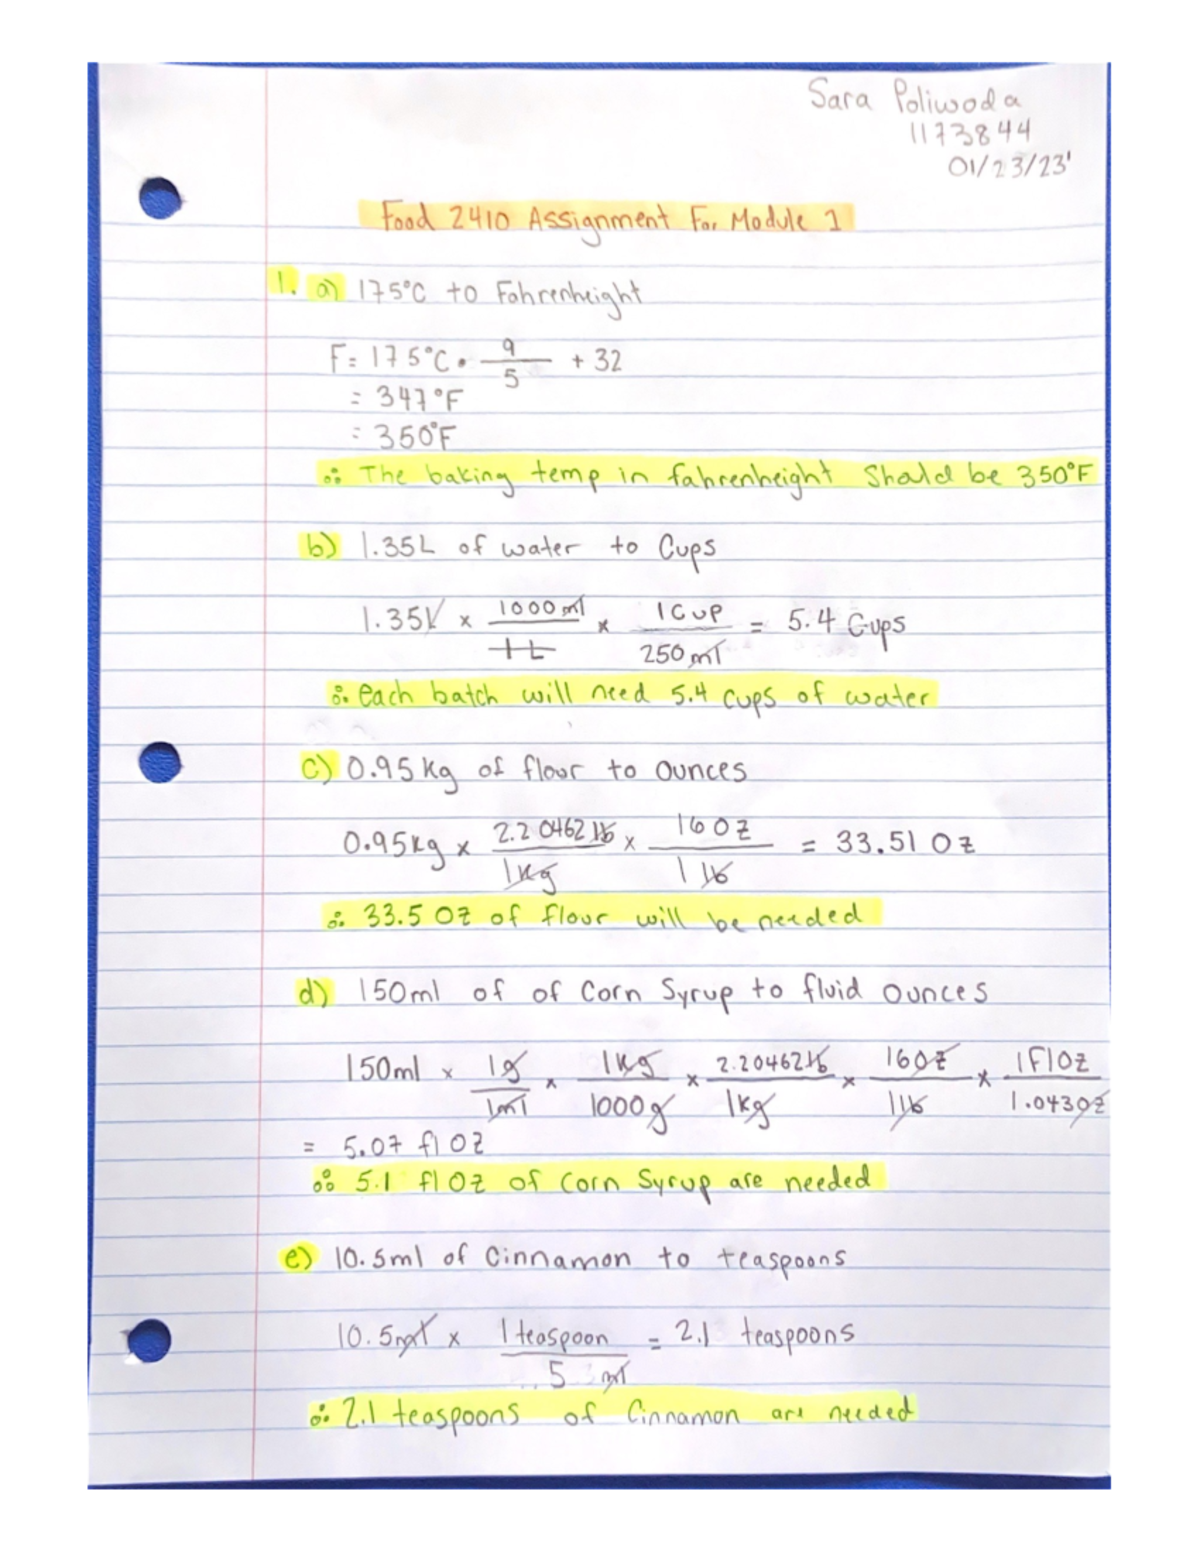 Sara Poliwoda
1173844
01/23/23
Food 2410 Assignment For Module 1
1. a) 175°C to Fahrenheight
F = 175°C • 9/5 + 32
= 347°F
= 350°F
∴ The baking temp in fahrenheight Should be 350°F
b) 1.35L of water to Cups
1.35L × 1000ml/1L × 1Cup/250ml = 5.4 Cups
∴ each batch will need 5.4 cups of water
c) 0.95kg of flour to ounces
0.95kg × 2.20462lb/1kg × 16oz/1lb = 33.51 Oz
∴ 33.5 Oz of flour will be needed
d) 150ml of of Corn Syrup to fluid Ounces
150ml × 1g/1ml × 1kg/1000g × 2.20462lb/1kg × 16oz/1lb × 1FlOz/1.043oz
= 5.07 fl OZ
∴ 5.1 fl OZ of Corn Syrup are needed
e) 10.5ml of Cinnamon to teaspoons
10.5ml × 1teaspoon/5 ml = 2.1 teaspoons
∴ 2.1 teaspoons of Cinnamon are needed